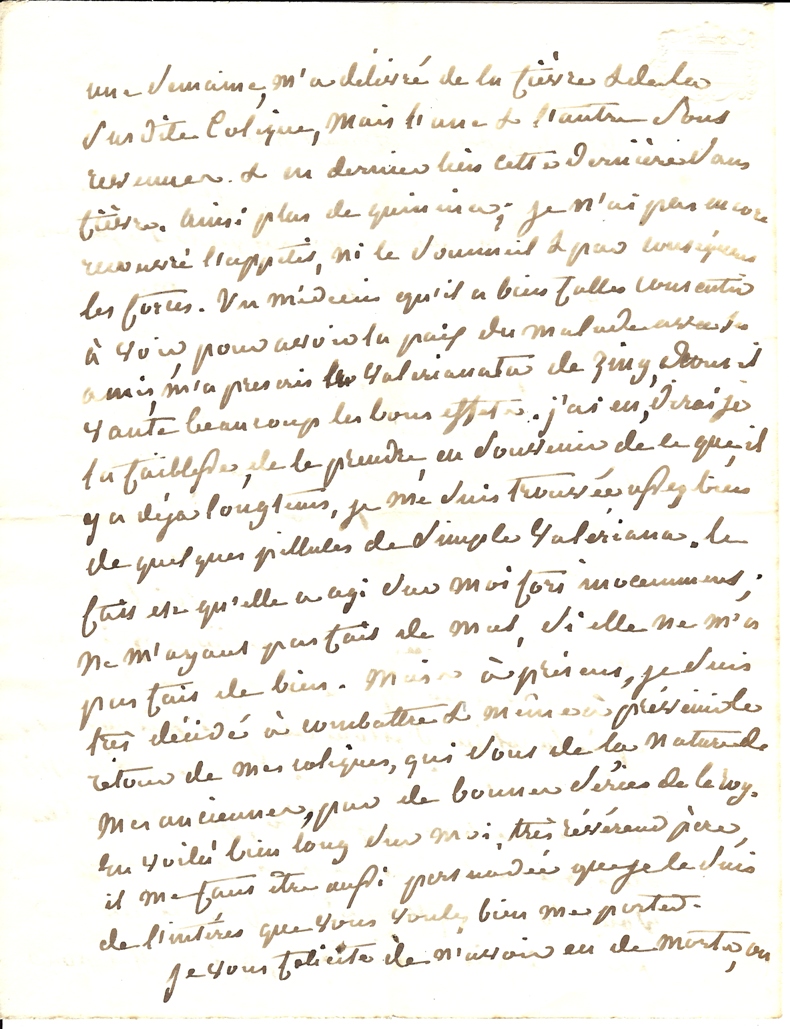 une semaine, m'a délivré de la fièvre & de la
susdite Colique, mais l'une & l'autre sont
revenues. & en dernier lieu cette dernière sans
fièvre. ainsi plus de quinina; je n'ai pas encore
recouvré l'appétit, ni le sommeil & par conséquent
les forces. Un médecin qu'il a bien fallu consentir
à voir pour avoir la paix du malade avec les
amis, m'a prescris le valerianate de zing, dont il
vante beaucoup les bons effets. j'ai eu, dirai je
la faiblesse, de le prendre, en souvenir de ce que, il
y a déja longtems, je me suis trouvée assez bien
de quelques pillules de simple Valériana. le
fait est qu'elle a agi sur moi fort innocemment;
ne m'ayant pas fait de mal, si elle ne m'a
pas fait de bien. Mais à présent, je suis
très décidé à combattre & même à prévenir le
retour de mes coliques, qui sont de la nature de
mes anciennes, par de bonnes séries de leroy.
En voilà bien long sur moi, très révérend père,
il me faut être aussi persuadée que je le suis
de l'intérêt que vous voulez bien me porter.
je vous félicite de n'avoir eu de morts, ou